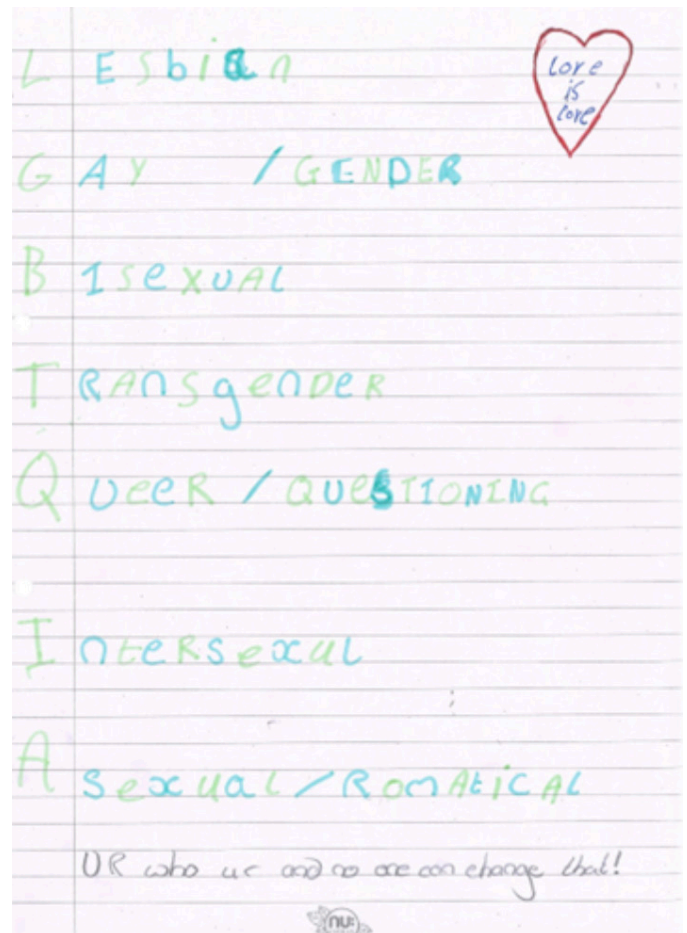 LESbian
love
is
love
GAY / GENDER
BISeXUAL
TRAnSgenDeR
QUeeR / QUeSTIONING
InteRSexuL
ASexual / RomAtiCAL
UR who ur and no one can change that!
nu: